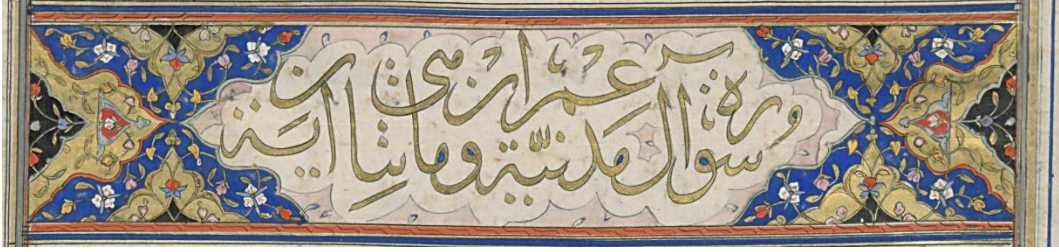 سورة آل عمران مدنية وهى مائتان اية